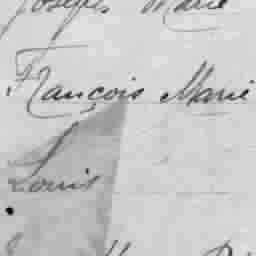 Joseph Marie
François Marie
Louis